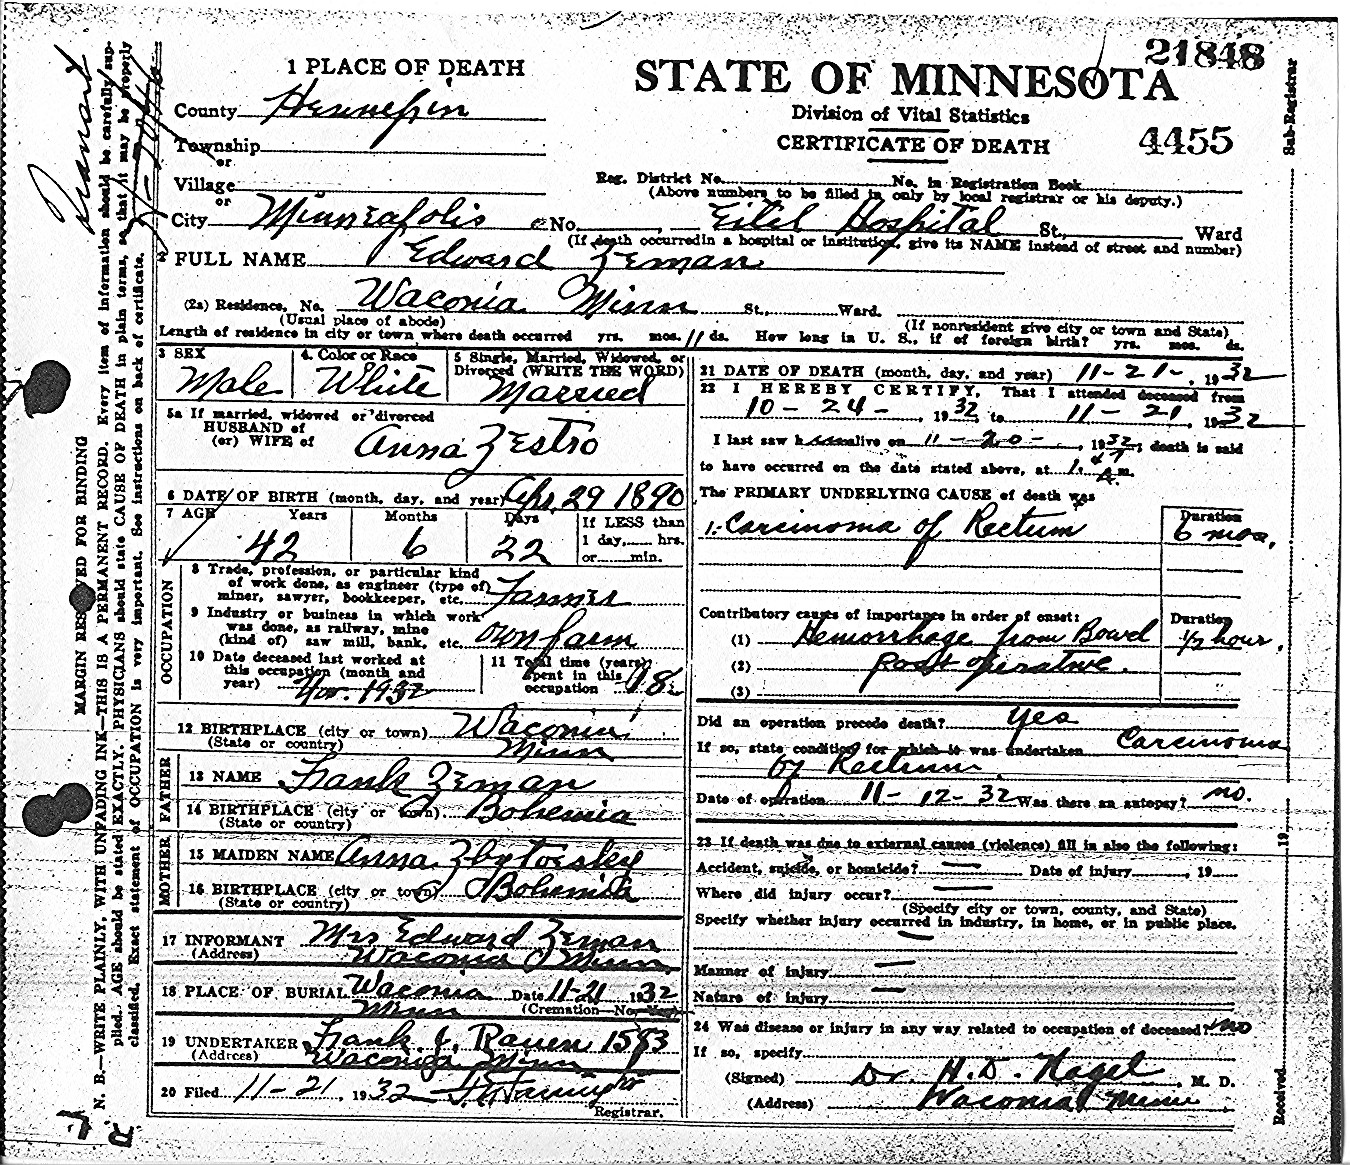 21848
1 PLACE OF DEATH
STATE OF MINNESOTA
Division of Vital Statistics
CERTIFICATE OF DEATH
4455
County Hennepin
Township
or
Village
or
City Minneapolis No. Eitel Hospital St., Ward
Reg. District No. No. in Registration Book
(Above numbers to be filled in only by local registrar or his deputy.)
(If death occurred in a hospital or institution, give its NAME instead of street and number)
2 FULL NAME Edward Zeman
(2a) Residence, No. Waconia Minn St., Ward.
(Usual place of abode) (If nonresident give city or town and State)
Length of residence in city or town where death occurred yrs. mos. 11 ds. How long in U. S., if of foreign birth? yrs. mos. ds.
3 SEX
Male
4. Color or Race
White
5 Single, Married, Widowed, or
Divorced (WRITE THE WORD)
Married
5a If married, widowed or divorced
HUSBAND of
(or) WIFE of Anna Zestro
6 DATE OF BIRTH (month, day, and year) Apr. 29 1890
7 AGE Years Months Days If LESS than
1 day, hrs.
or min.
42 6 22
OCCUPATION
8 Trade, profession, or particular kind
of work done, as engineer (type of)
miner, sawyer, bookkeeper, etc. Farmer
9 Industry or business in which work
was done, as railway, mine
(kind of) saw mill, bank, etc. own farm
10 Date deceased last worked at
this occupation (month and
year) Nov. 1932
11 Total time (years)
spent in this
occupation 18
12 BIRTHPLACE (city or town) Waconia
(State or country) Minn
FATHER
13 NAME Frank Zeman
14 BIRTHPLACE (city or town) Bohemia
(State or country)
MOTHER
15 MAIDEN NAME Anna Zbytovsky
16 BIRTHPLACE (city or town) Bohemia
(State or country)
17 INFORMANT Mrs Edward Zeman
(Address) Waconia Minn
18 PLACE OF BURIAL Waconia Date 11-21 1932
Minn (Cremation No.
19 UNDERTAKER Frank J. Rauen 1583
(Address) Waconia Minn
20 Filed 11-21 1932
Registrar.
21 DATE OF DEATH (month, day, and year) 11-21-, 1932
22 I HEREBY CERTIFY, That I attended deceased from
10-24-, 1932 to 11-21, 1932
I last saw h alive on 11-20-, 1932; death is said
to have occurred on the date stated above, at 1.47 A.m.
The PRIMARY UNDERLYING CAUSE of death was
Duration
1. Carcinoma of Rectum 6 mos.
Contributory causes of importance in order of onset: Duration
(1) Hemorrhage from Bowel 1/2 hour.
(2) post operative.
(3)
Did an operation precede death? yes
If so, state condition for which it was undertaken Carcinoma
of Rectum.
Date of operation 11-12-32 Was there an autopsy? no.
23 If death was due to external causes (violence) fill in also the following:
Accident, suicide, or homicide? — Date of injury , 19
Where did injury occur? —
(Specify city or town, county, and State)
Specify whether injury occurred in industry, in home, or in public place.
—
Manner of injury —
Nature of injury —
24 Was disease or injury in any way related to occupation of deceased? no
If so, specify
(Signed) Dr. H.D. Nagel, M. D.
(Address) Waconia Minn
MARGIN RESERVED FOR BINDING
N. B.—WRITE PLAINLY, WITH UNFADING INK—THIS IS A PERMANENT RECORD. Every item of information should be carefully sup-
plied. AGE should be stated EXACTLY. PHYSICIANS should state CAUSE OF DEATH in plain terms, so that it may be properly
classified. Exact statement of OCCUPATION is very important. See instructions on back of certificate.
Sub-Registrar
Received 19